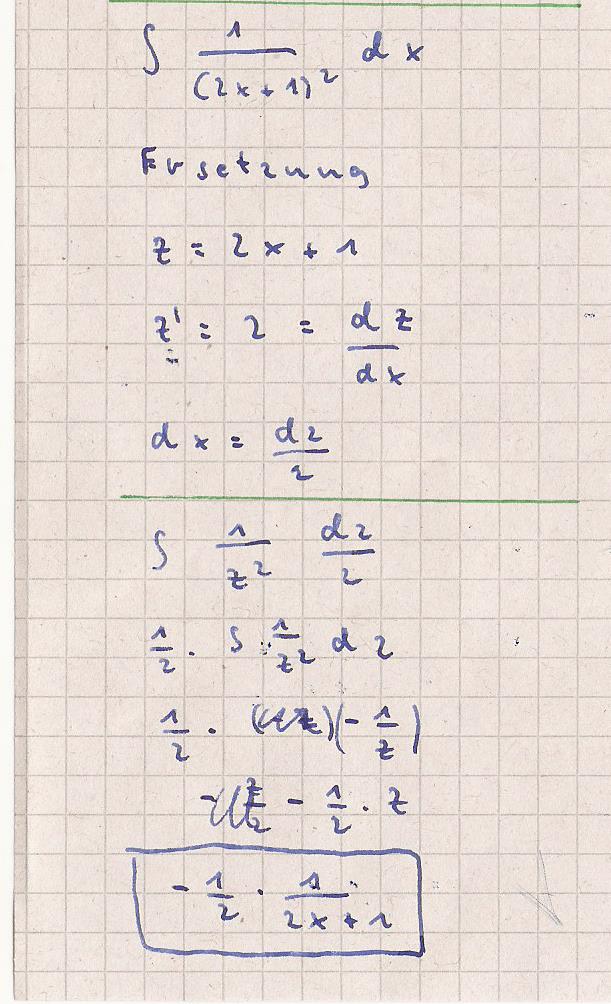 ∫ 1/(2x+1)² dx
Ersetzung
z = 2x + 1
z' = 2 = dz/dx
dx = dz/2
∫ 1/z² dz/2
1/2 · ∫ 1/z² dz
1/2 · (-1/z)
- 1/2 · z
- 1/2 · 1/(2x+1)